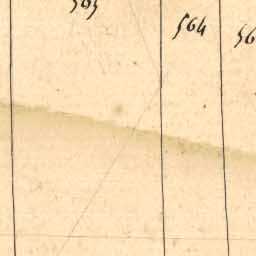 565
564
56